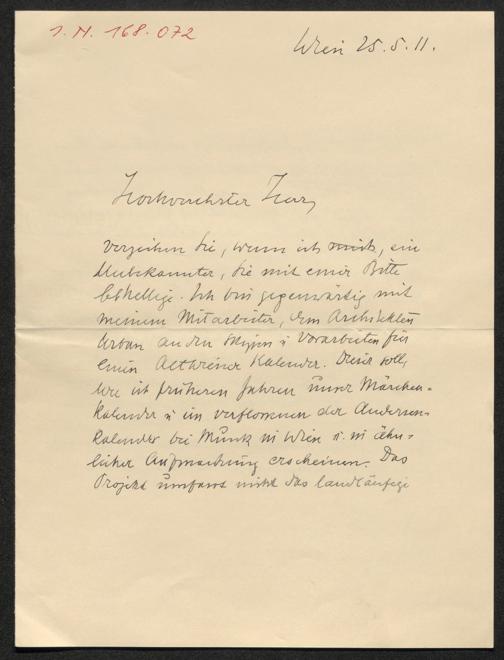 I. N. 168.072
Wien 25.5.11.
Hochverehrter Herr,
verzeihen Sie, wenn ich mich, ein
Unbekannter, Sie mit einer Bitte
behellige. Ich bin gegenwärtig mit
meinem Mitarbeiter, dem Architekten
Urban an den Skizzen u Vorarbeiten für
einen Altwiener Kalender. Dieser soll,
wie in früheren Jahren unser Märchen-
kalender u im verflossenen der Andersen-
kalender bei Munk in Wien u. in ähn-
licher Aufmachung erscheinen. Das
Projekt umfasst nicht das landläufige